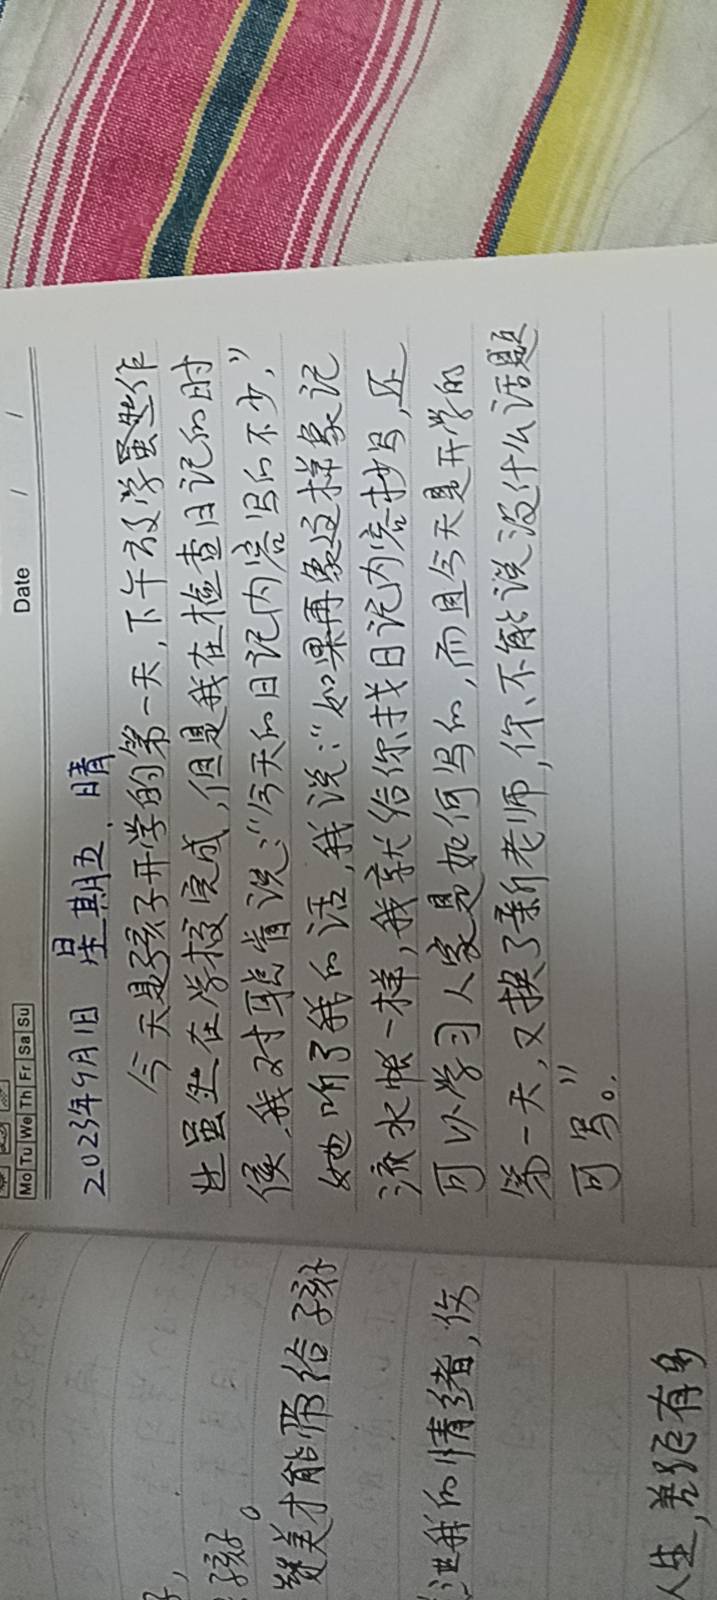 Mo Tu We Th Fr Sa Su
Date / /
2023年9月1日 星期五. 晴
今天是孩子开学的第一天,下午放学虽然作
业虽然在学校完成,但是我在检查日记的时
侯,我对耽肯说:“今天的日记内容写的不少,”
她听了我的话,我说:“如果再象这样象记
流水帐一样,我就给你找日记内容抄写,还
可以学习人家是如何写的,而且今天是开学的
第一天,又换了新老师,你不能说没什么话题
可写。”
孩子。
赞美才能带给孩子
我的情绪,伤
人生,差距有多